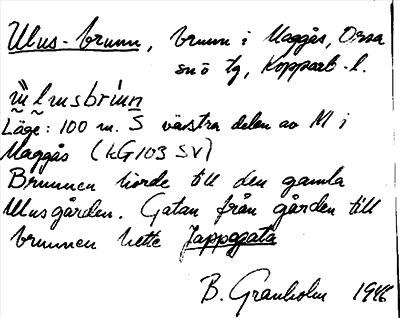 Ulus-brunn, brunn i Maggås, Orsa
snö tg, Kopparb. l.
Läge: 100 m. S västra delen av M i
Maggås (kG103 SV)
Brunnen hörde till den gamla
Ulusgården. Gatan från gården till
brunnen hette Jappogata
B. Granholm 1946